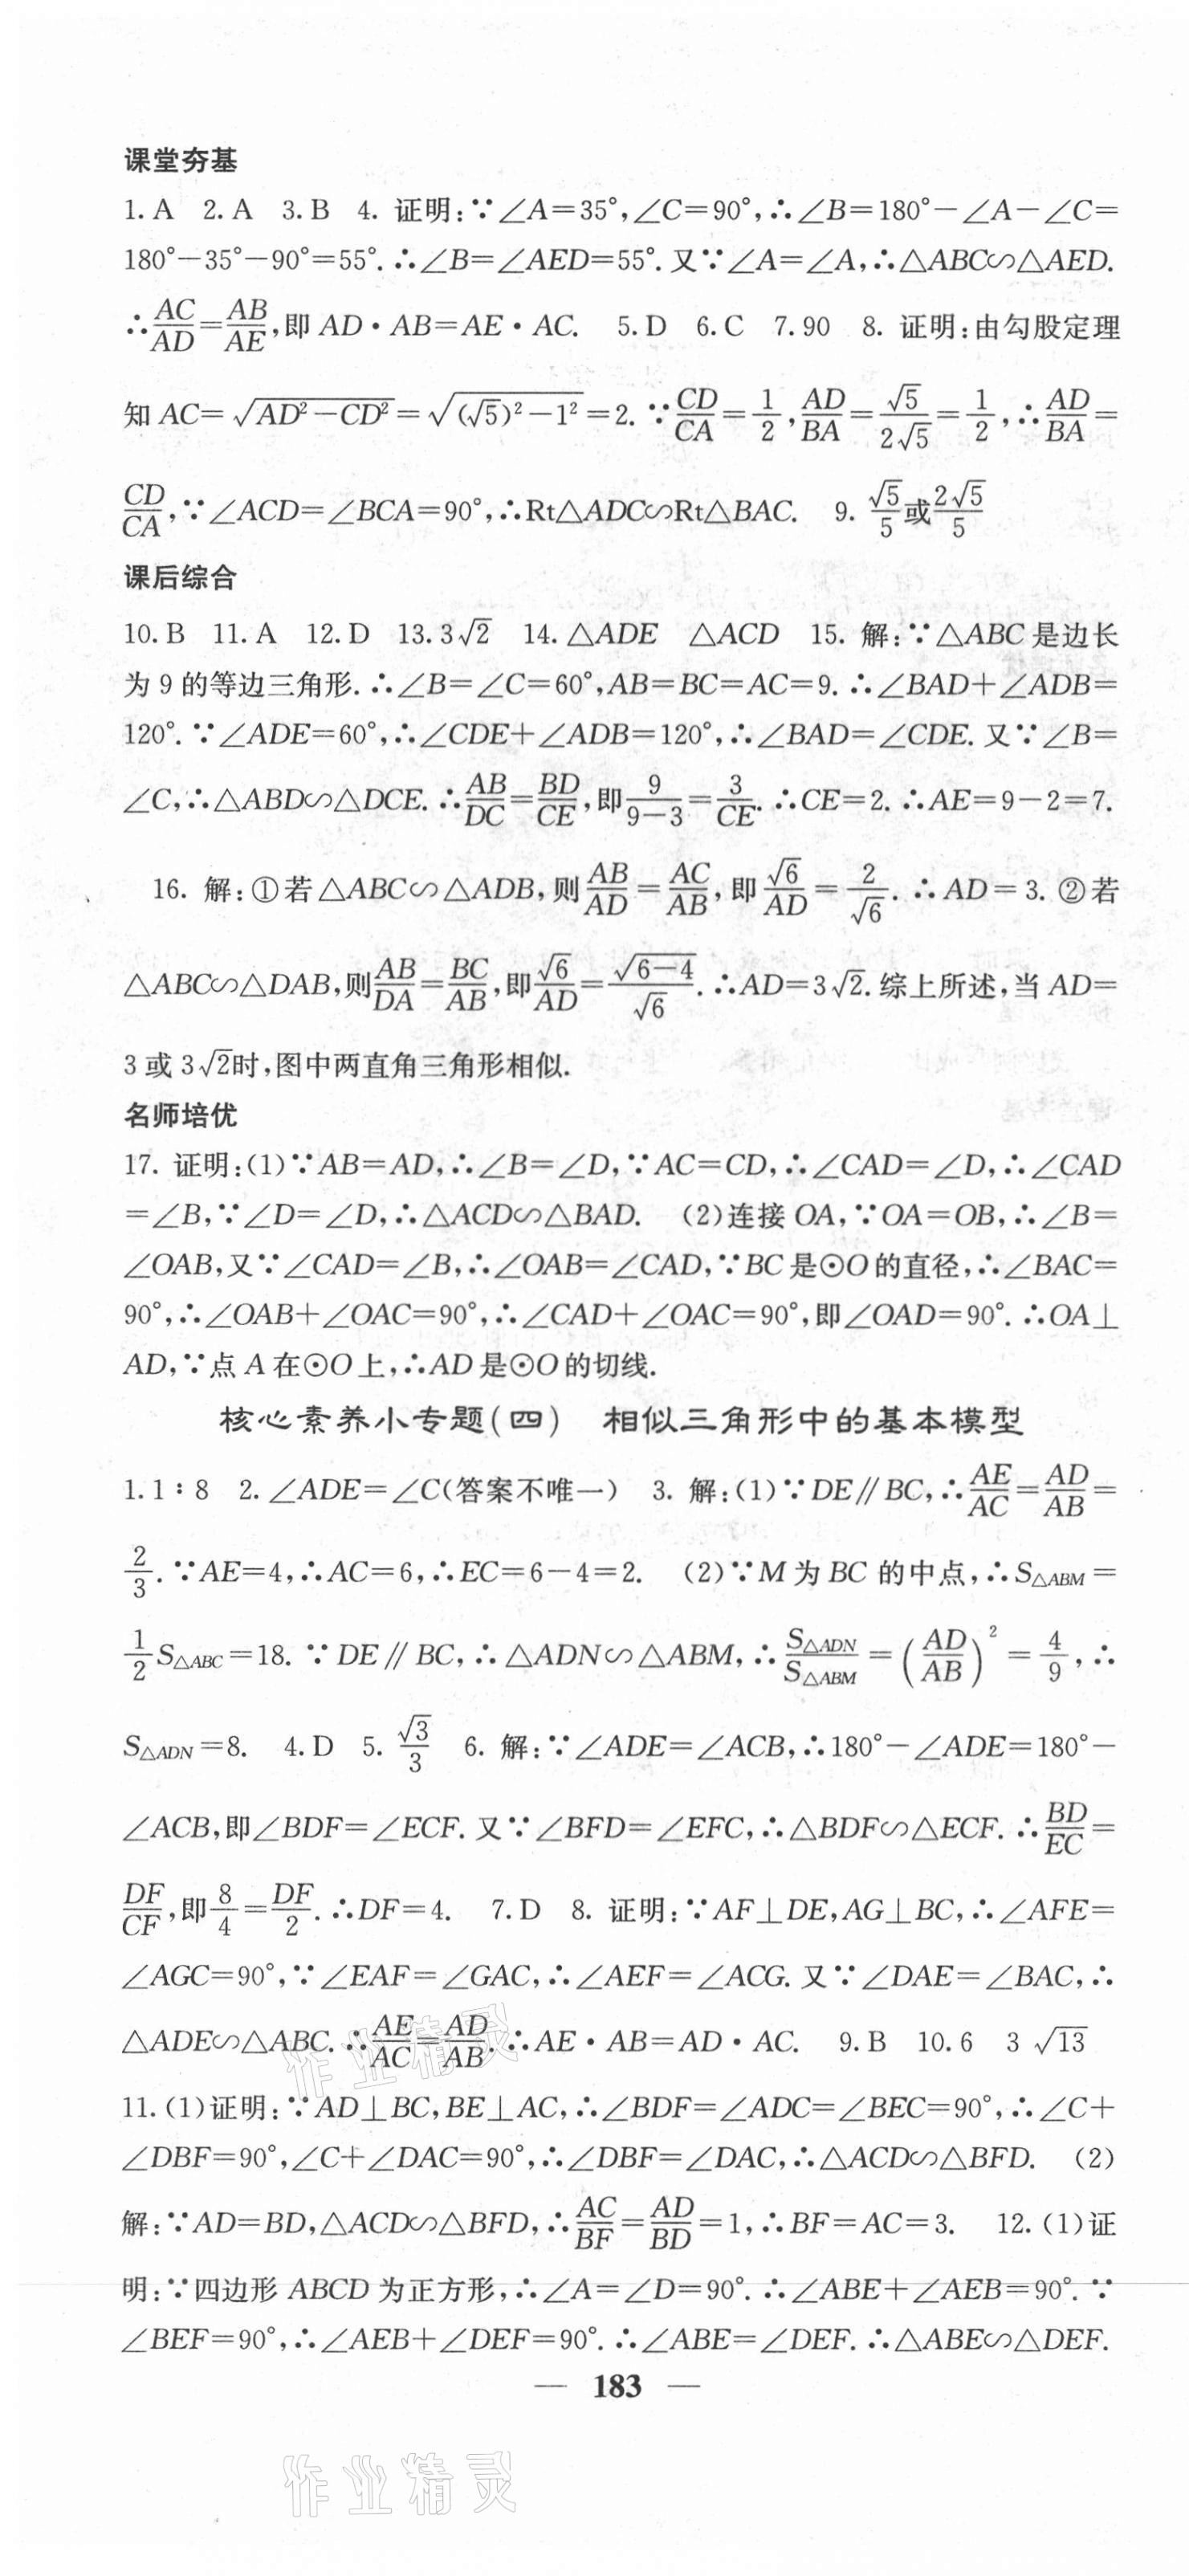 课堂夯基
1. A 2. A 3. B 4. 证明:∵∠A=35°,∠C=90°,∴∠B=180°-∠A-∠C=
180°-35°-90°=55°.∴∠B=∠AED=55°.又∵∠A=∠A,∴△ABC∽△AED.
∴AC/AD=AB/AE,即 AD·AB=AE·AC. 5. D 6. C 7. 90 8. 证明:由勾股定理
知 AC=√(AD²-CD²)=√((√5)²-1²)=2.∵CD/CA=1/2,AD/BA=√5/(2√5)=1/2,∴AD/BA=
CD/CA,∵∠ACD=∠BCA=90°,∴Rt△ADC∽Rt△BAC. 9. √5/5或2√5/5
课后综合
10. B 11. A 12. D 13. 3√2 14. △ADE △ACD 15. 解:∵△ABC是边长
为9的等边三角形.∴∠B=∠C=60°,AB=BC=AC=9.∴∠BAD+∠ADB=
120°.∵∠ADE=60°,∴∠CDE+∠ADB=120°,∴∠BAD=∠CDE.又∵∠B=
∠C,∴△ABD∽△DCE.∴AB/DC=BD/CE,即9/(9-3)=3/CE.∴CE=2.∴AE=9-2=7.
16. 解:①若△ABC∽△ADB,则AB/AD=AC/AB,即√6/AD=2/√6.∴AD=3.②若
△ABC∽△DAB,则AB/DA=BC/AB,即√6/AD=√(6-4)/√6.∴AD=3√2.综上所述,当 AD=
3或3√2时,图中两直角三角形相似.
名师培优
17. 证明:(1)∵AB=AD,∴∠B=∠D,∵AC=CD,∴∠CAD=∠D,∴∠CAD
=∠B,∵∠D=∠D,∴△ACD∽△BAD. (2)连接 OA,∵OA=OB,∴∠B=
∠OAB,又∵∠CAD=∠B,∴∠OAB=∠CAD,∵BC是⊙O的直径,∴∠BAC=
90°,∴∠OAB+∠OAC=90°,∴∠CAD+∠OAC=90°,即∠OAD=90°.∴OA⊥
AD,∵点A在⊙O上,∴AD是⊙O的切线.
核心素养小专题(四) 相似三角形中的基本模型
1. 1∶8 2. ∠ADE=∠C(答案不唯一) 3. 解:(1)∵DE∥BC,∴AE/AC=AD/AB=
2/3.∵AE=4,∴AC=6,∴EC=6-4=2. (2)∵M为BC的中点,∴S△ABM=
1/2S△ABC=18.∵DE∥BC,∴△ADN∽△ABM,∴S△ADN/S△ABM=(AD/AB)²=4/9,∴
S△ADN=8. 4. D 5. √3/3 6. 解:∵∠ADE=∠ACB,∴180°-∠ADE=180°-
∠ACB,即∠BDF=∠ECF.又∵∠BFD=∠EFC,∴△BDF∽△ECF.∴BD/EC=
DF/CF,即8/4=DF/2.∴DF=4. 7. D 8. 证明:∵AF⊥DE,AG⊥BC,∴∠AFE=
∠AGC=90°,∵∠EAF=∠GAC,∴∠AEF=∠ACG.又∵∠DAE=∠BAC,∴
△ADE∽△ABC.∴AE/AC=AD/AB.∴AE·AB=AD·AC. 9. B 10. 6 3 √13
11. (1)证明:∵AD⊥BC,BE⊥AC,∴∠BDF=∠ADC=∠BEC=90°,∴∠C+
∠DBF=90°,∠C+∠DAC=90°,∴∠DBF=∠DAC,∴△ACD∽△BFD. (2)
解:∵AD=BD,△ACD∽△BFD,∴AC/BF=AD/BD=1,∴BF=AC=3. 12. (1)证
明:∵四边形ABCD为正方形,∴∠A=∠D=90°.∴∠ABE+∠AEB=90°.∵
∠BEF=90°,∴∠AEB+∠DEF=90°.∴∠ABE=∠DEF.∴△ABE∽△DEF.
— 183 —
作业精灵
作业精灵